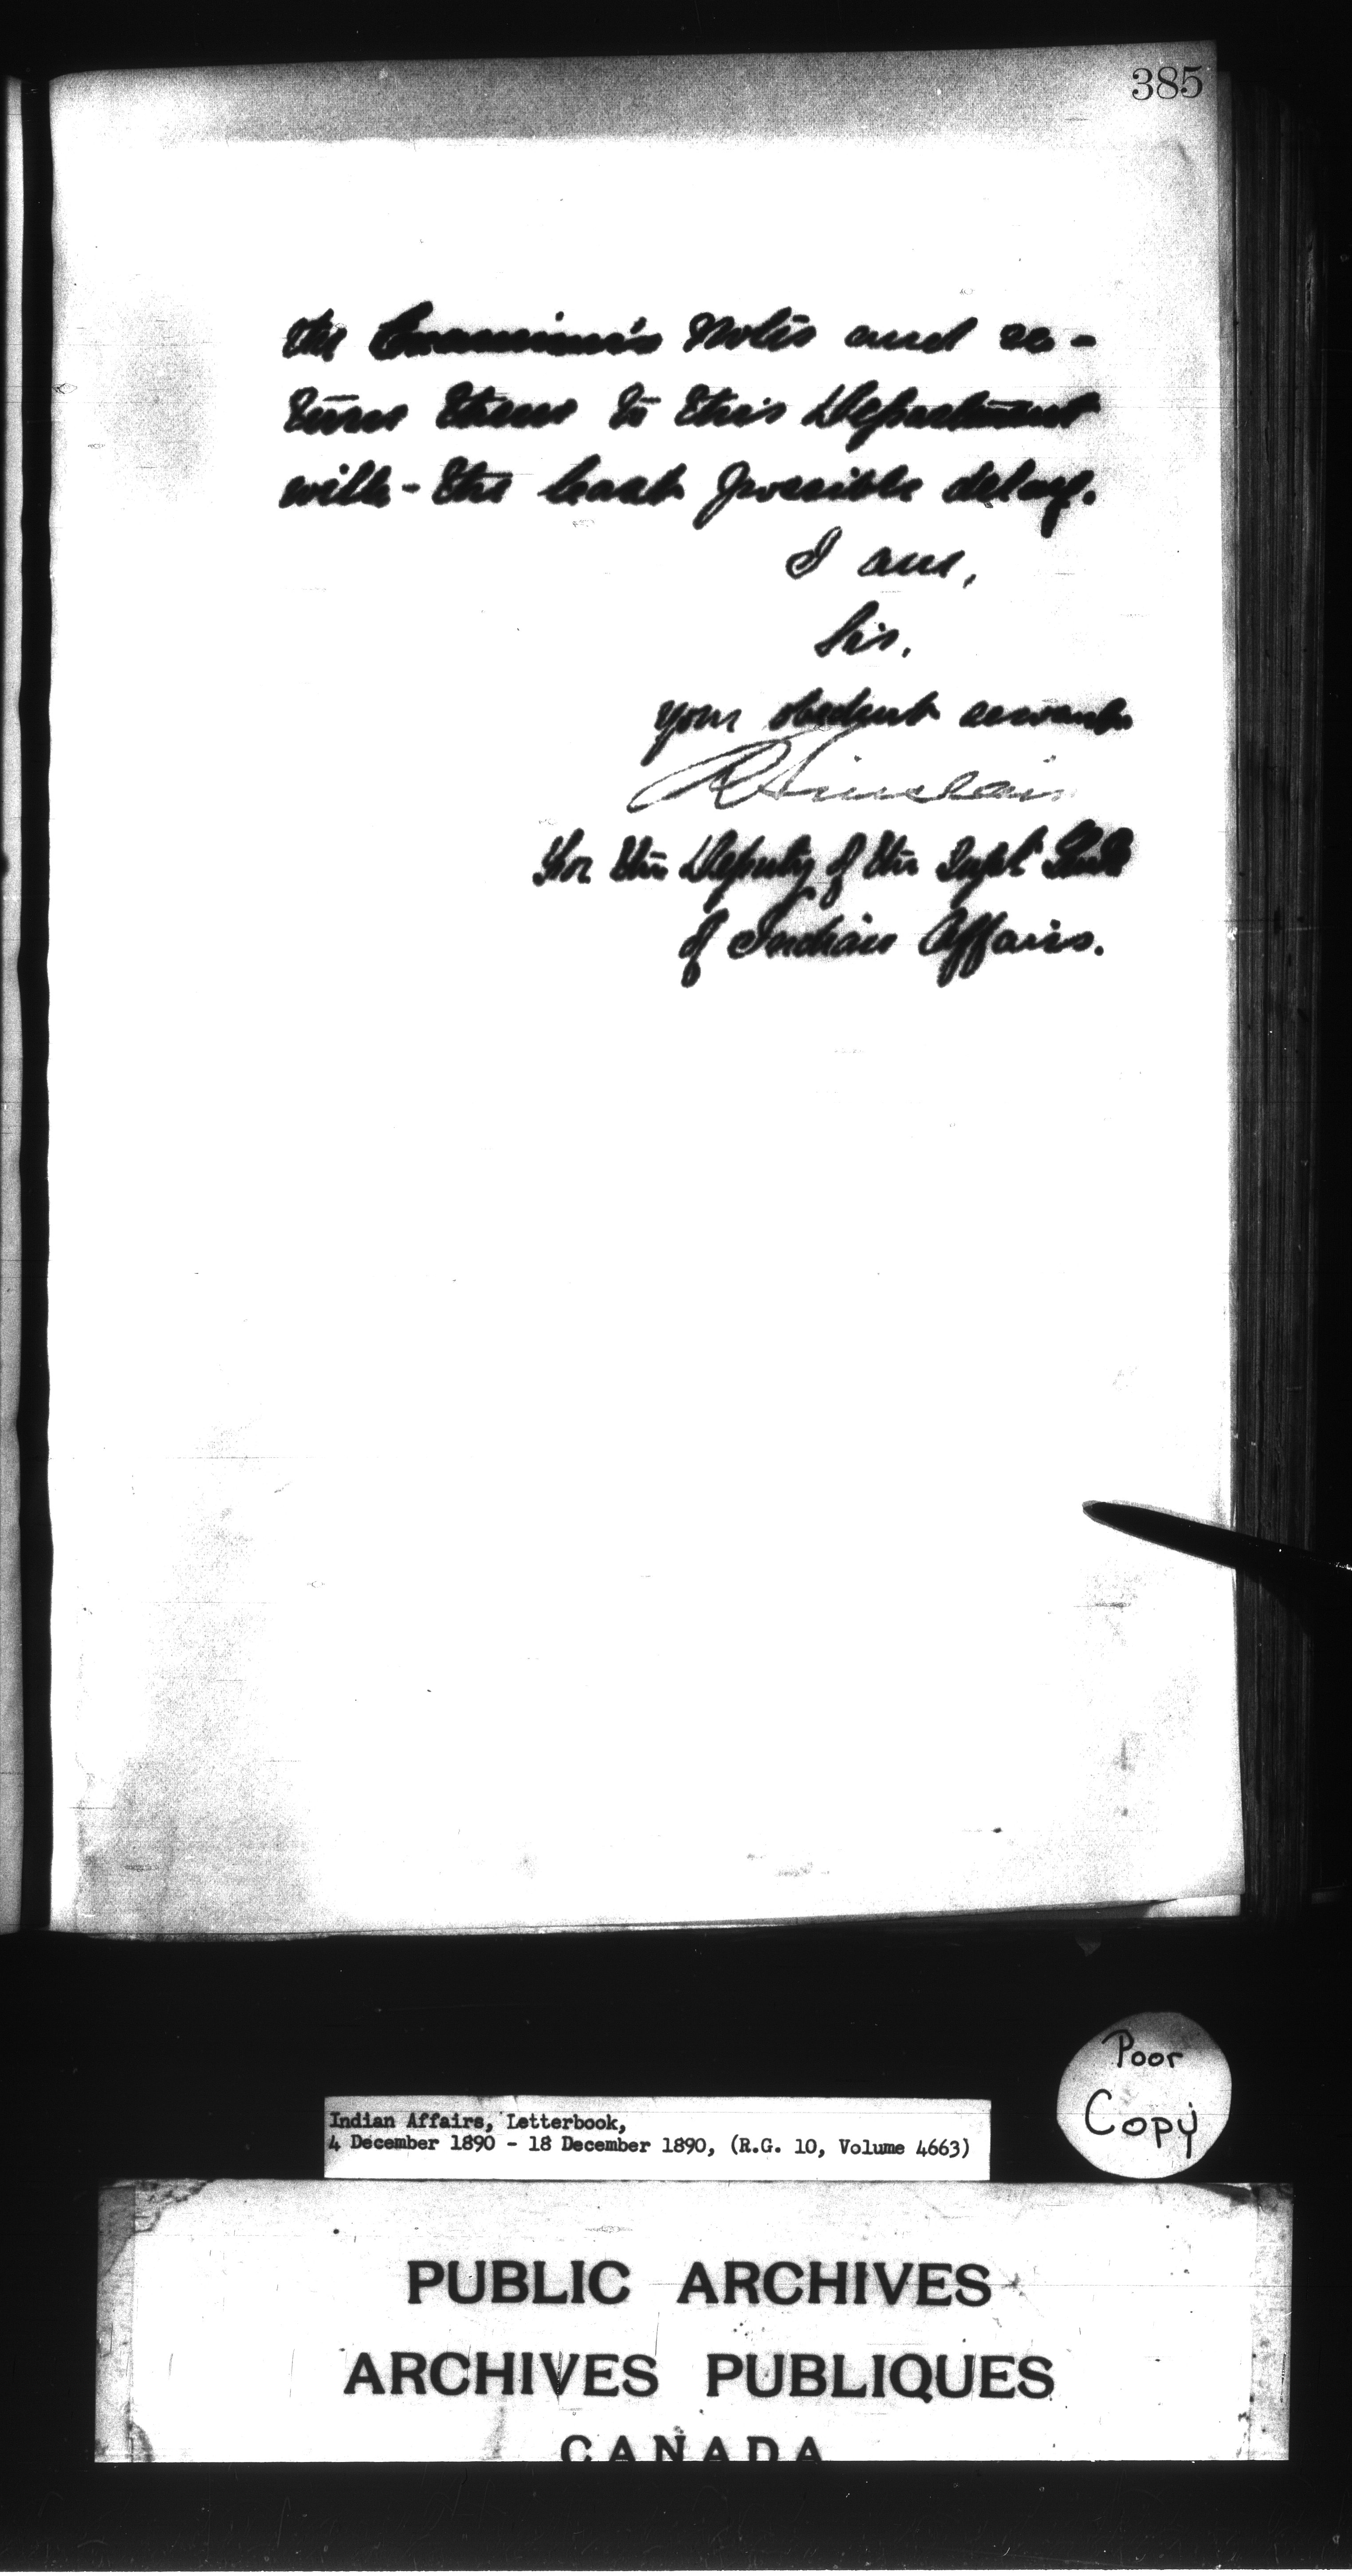 385
the Examiner's Notes and re-
turn them to this Department
with the least possible delay.
I am,
Sir,
your obedient servant
R Sinclair
For the Deputy of the Supt Genl
of Indian Affairs.
Poor
Copy
Indian Affairs, Letterbook,
4 December 1890 - 18 December 1890, (R.G. 10, Volume 4663)
PUBLIC ARCHIVES
ARCHIVES PUBLIQUES
CANADA